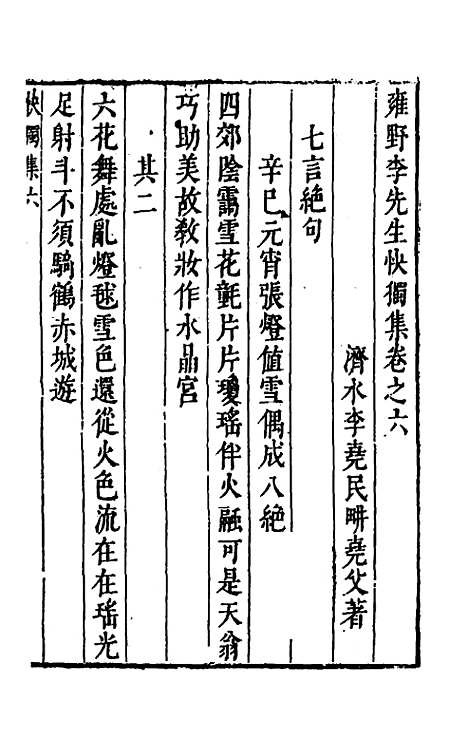 雍野李先生快獨集卷之六
濟水李堯民畊堯父著
七言絶句
辛巳元宵張燈值雪偶成八絶
四郊陰靄雪花氈片片瓊瑤伴火融可是天翁
巧助美故教妝作水晶宮
其二
六花舞處亂燈毬雪色還從火色流在在瑤光
足射斗不須騎鶴赤城遊
快獨集六